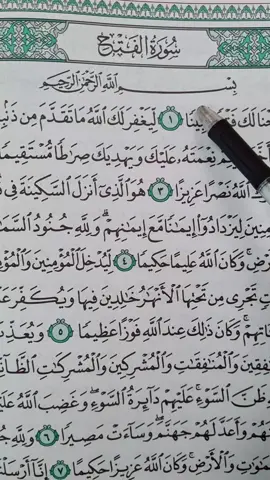 سُورَةُ الْفَتْحِ
بِسْمِ اللَّهِ الرَّحْمَٰنِ الرَّحِيمِ
لَكَ ١ لِّيَغْفِرَ لَكَ اللَّهُ مَا تَقَدَّمَ مِن
نِعْمَتَهُ عَلَيْكَ وَيَهْدِيَكَ صِرَاطًا مُّسْتَقِيمًا
اللَّهُ نَصْرًا عَزِيزًا ٣ هُوَ الَّذِي أَنزَلَ السَّكِينَةَ فِي
لِيَزْدَادُوا إِيمَانًا مَّعَ إِيمَانِهِمْ وَلِلَّهِ جُنُودُ
وَكَانَ اللَّهُ عَلِيمًا حَكِيمًا ٤ لِّيُدْخِلَ الْمُؤْمِنِينَ
تَجْرِي مِن تَحْتِهَا الْأَنْهَارُ خَالِدِينَ فِيهَا وَيُكَفِّرَ
وَكَانَ ذَٰلِكَ عِندَ اللَّهِ فَوْزًا عَظِيمًا ٥
وَالْمُنَافِقَاتِ وَالْمُشْرِكِينَ وَالْمُشْرِكَاتِ
ظَنَّ السَّوْءِ عَلَيْهِمْ دَائِرَةُ السَّوْءِ وَغَضِبَ اللَّهُ
وَأَعَدَّ لَهُمْ جَهَنَّمَ وَسَاءَتْ مَصِيرًا ٦
وَالْأَرْضِ وَكَانَ اللَّهُ عَزِيزًا حَكِيمًا ٧ إِنَّا